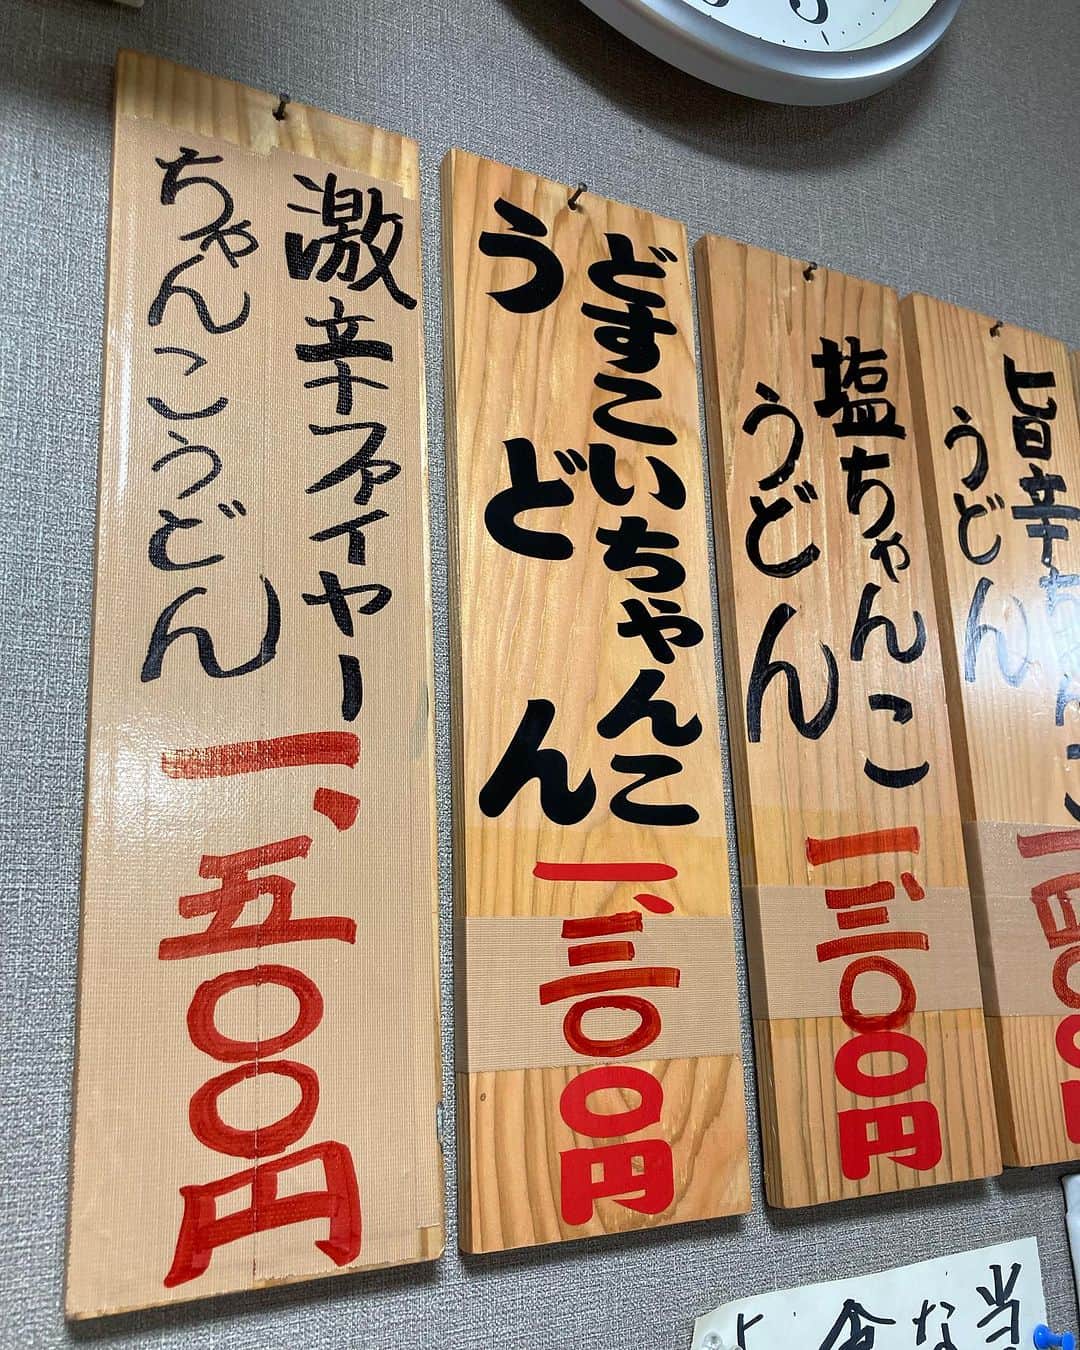 激辛ファイヤー
ちゃんこうどん
一、五〇〇円
どすこいちゃんこ
うどん
一、三〇〇円
塩ちゃんこ
うどん
一、三〇〇円
旨辛ちゃんこ
うどん